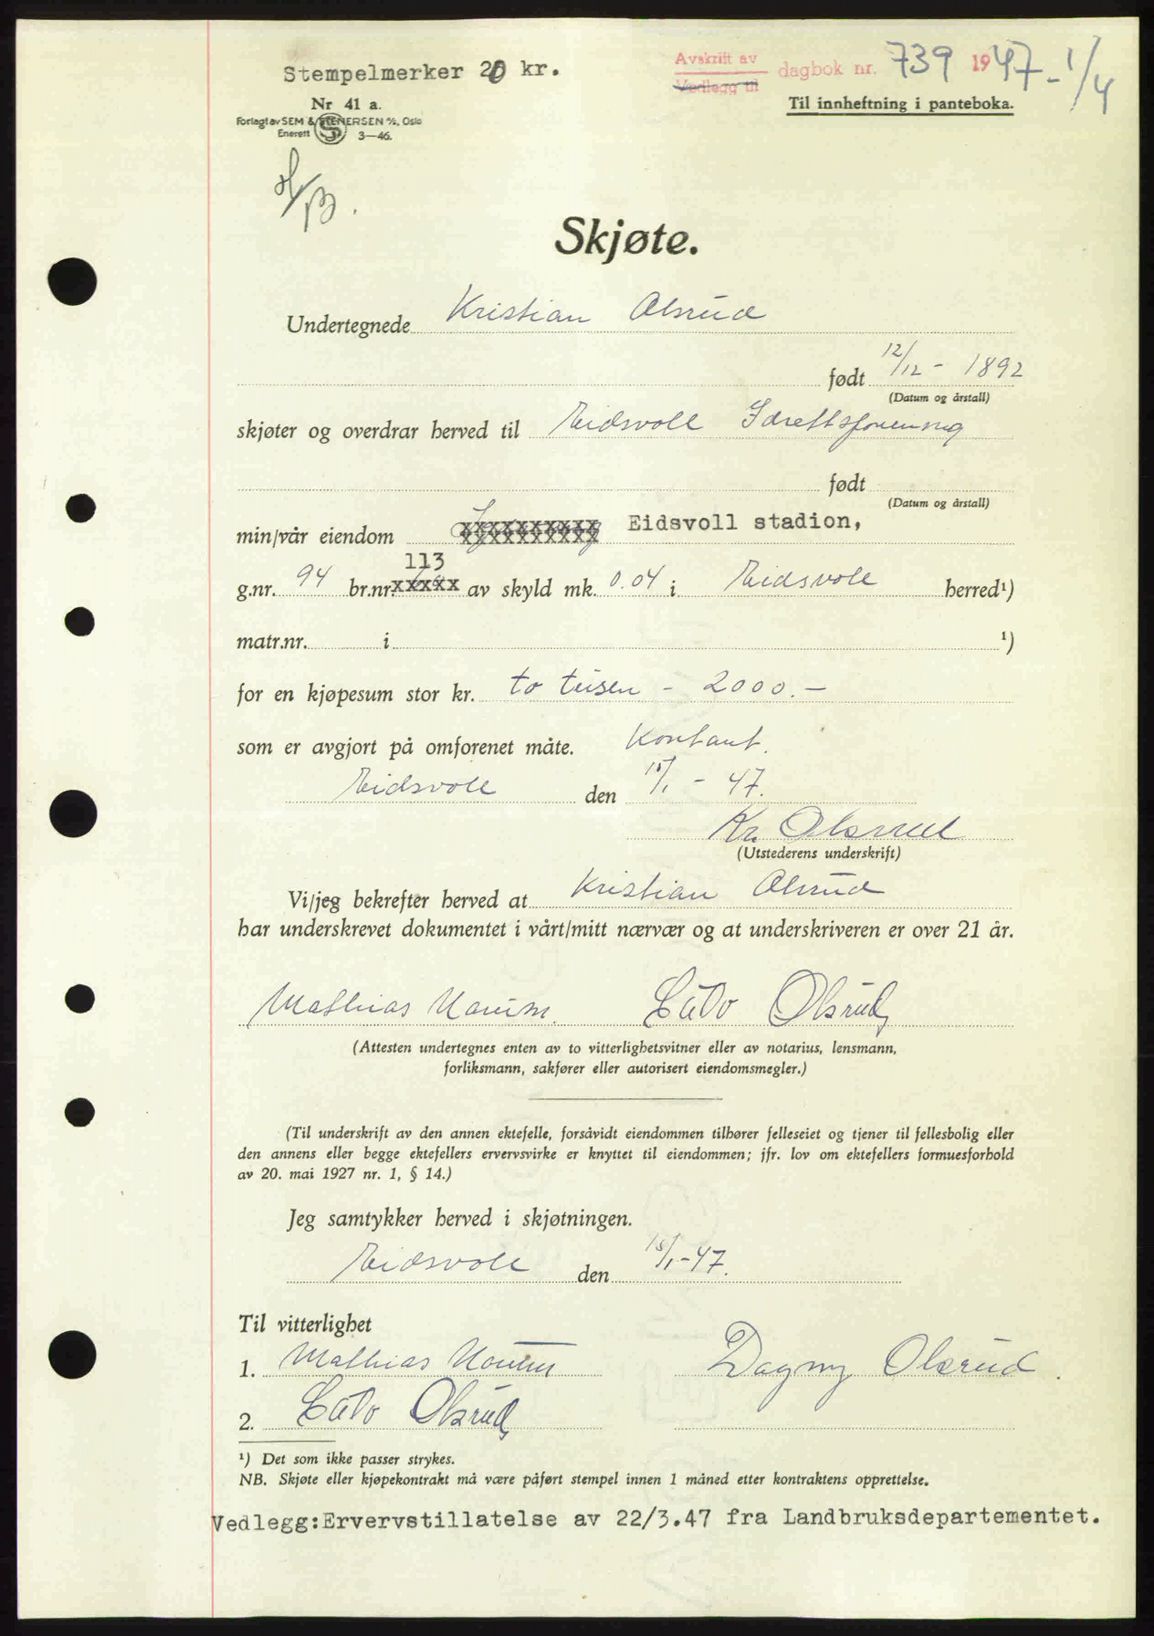 Stempelmerker 20 kr.
Avskrift av
Vedlegg til
dagbok nr. 739 1947 - 1/4
Til innheftning i panteboka.
Nr 41 a.
Forlagt av SEM & STENERSEN A/S, Oslo
Enerett 3—46.
Skjøte.
Undertegnede Kristian Olsrud
født 12/12 - 1892
(Datum og årstall)
skjøter og overdrar herved til Eidsvoll Idrettsforening
født
(Datum og årstall)
min/vår eiendom xxxxxxxxxx Eidsvoll stadion,
113
g.nr. 94 br.nr. xxxxx av skyld mk. 0.04 i Eidsvoll herred¹)
matr.nr. i ¹)
for en kjøpesum stor kr. to tusen - 2000.-
som er avgjort på omforenet måte. Kontant.
Eidsvoll den 15/1 - 47.
Kr. Olsrud
(Utstederens underskrift)
Vi/jeg bekrefter herved at Kristian Olsrud
har underskrevet dokumentet i vårt/mitt nærvær og at underskriveren er over 21 år.
Mathias Olsrud
(Attesten undertegnes enten av to vitterlighetsvitner eller av notarius, lensmann,
forliksmann, sakfører eller autorisert eiendomsmegler.)
(Til underskrift av den annen ektefelle, forsåvidt eiendommen tilhører felleseiet og tjener til fellesbolig eller
den annens eller begge ektefellers ervervsvirke er knyttet til eiendommen; jfr. lov om ektefellers formuesforhold
av 20. mai 1927 nr. 1, § 14.)
Jeg samtykker herved i skjøtningen.
Eidsvoll den 15/1-47.
Til vitterlighet
1. Mathias Dagny Olsrud.
2. Olsrud
¹) Det som ikke passer strykes.
NB. Skjøte eller kjøpekontrakt må være påført stempel innen 1 måned etter kontraktens opprettelse.
Vedlegg:Ervervstillatelse av 22/3.47 fra Landbruksdepartementet.